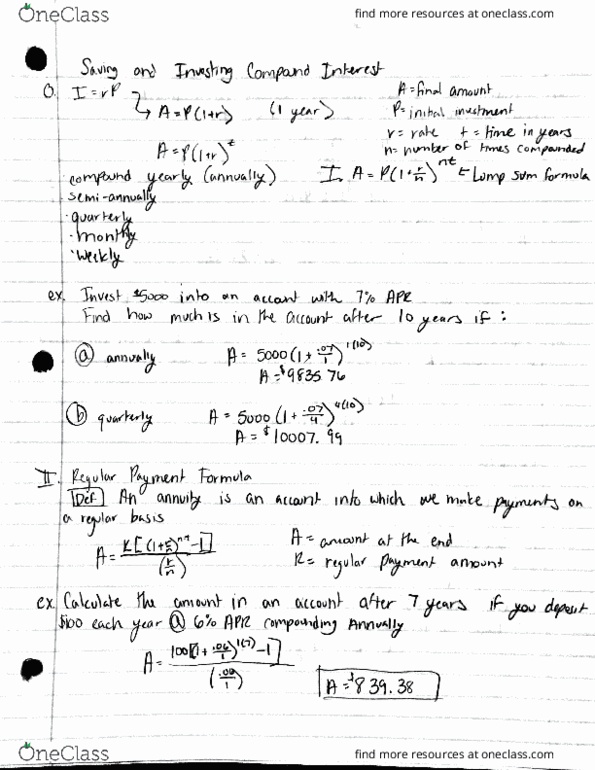 OneClass
find more resources at oneclass.com
Saving and Investing Compound Interest
0. I = rP
A = final amount
↳ A = P(1+r) (1 year)
P = initial investment
r = rate t = time in years
A = P(1+r)^t
n = number of times compounded
· compound yearly (annually)
I. A = P(1+r/n)^nt ← Lump sum formula
semi-annually
· quarterly
· monthly
· weekly
ex. Invest $5000 into an account with 7% APR
Find how much is in the account after 10 years if :
ⓐ annually A = 5000(1+.07/1)^1(10)
A = $9835.76
ⓑ quarterly A = 5000(1+.07/4)^4(10)
A = $10007.99
II. Regular Payment Formula
Def An annuity is an account into which we make payments on
a regular basis
A = R[(1+r/n)^nt -1]/(r/n)
A = amount at the end
R = regular payment amount
ex. Calculate the amount in an account after 7 years if you deposit
$100 each year @ 6% APR compounding Annually
A = 100[(1+.06/1)^1(7) -1]/(.06/1)
A = $839.38
OneClass
find more resources at oneclass.com